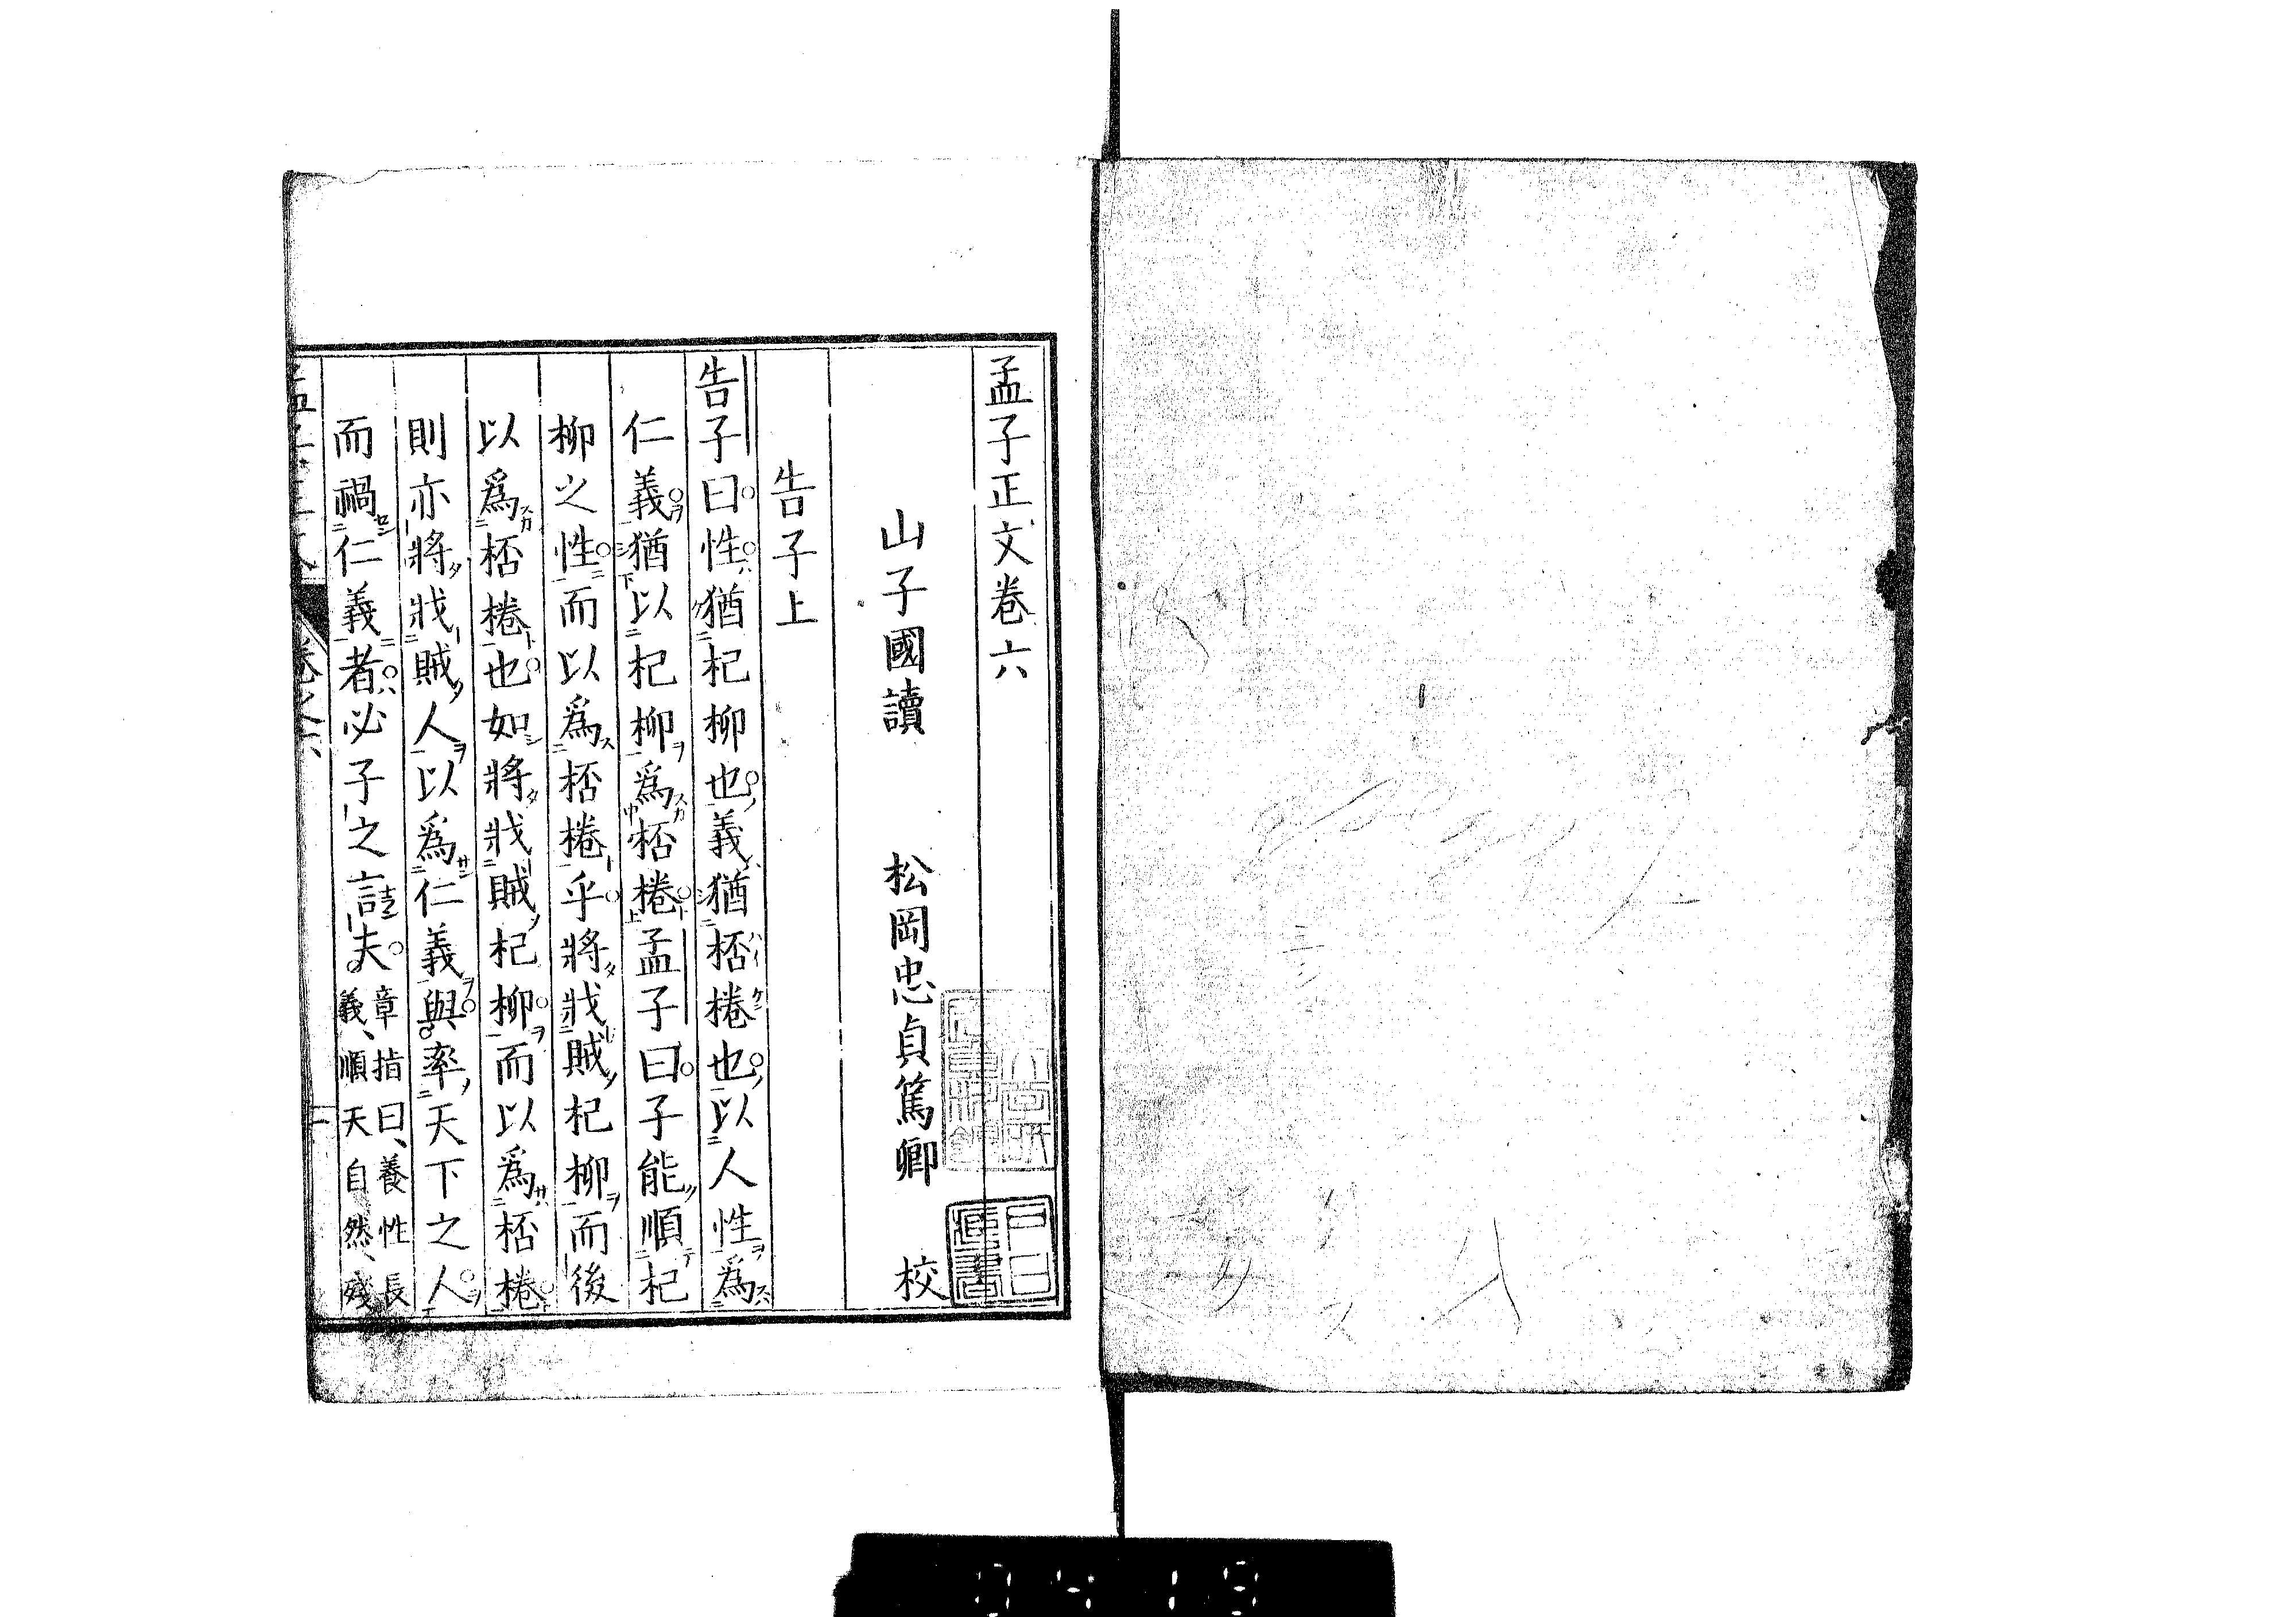 孟子正文卷六
山子國讀 松岡忠貞篤卿 校
告子上
告子曰性猶杞柳也義猶桮棬也以人性爲
仁義猶以杞柳爲桮棬孟子曰子能順杞
柳之性而以爲桮棬乎將戕賊杞柳而後
以爲桮棬也如將戕賊杞柳而以爲桮棬
則亦將戕賊人以爲仁義與率天下之人
而禍仁義者必子之言夫
章指曰、養性長
義、順天自然、殘
卷之六
0419